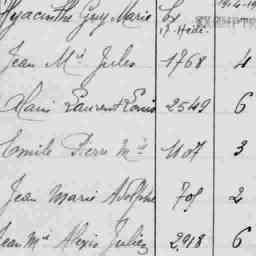 Hyacinthe Guy Marie
Jean Mie Jules 1768 4
Louis Laurent Louis 2549 6
Emile Pierre Mie 1107 3
Jean Marie Adolphe 705 2
Jean Mie Alexis Julien 2918 6